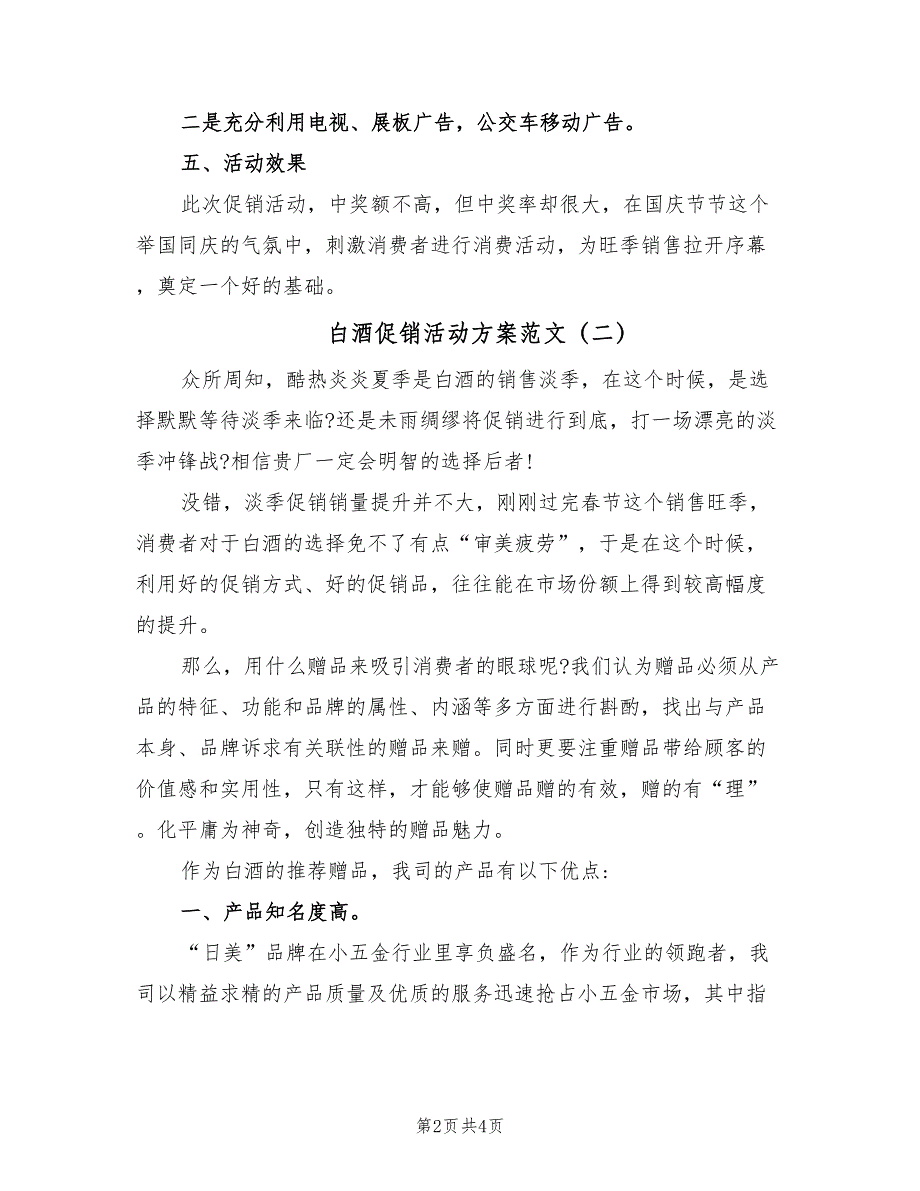 二是充分利用电视、展板广告，公交车移动广告。
五、活动效果
此次促销活动，中奖额不高，但中奖率却很大，在国庆节节这个
举国同庆的气氛中，刺激消费者进行消费活动，为旺季销售拉开序幕
，奠定一个好的基础。
白酒促销活动方案范文（二）
众所周知，酷热炎炎夏季是白酒的销售淡季，在这个时候，是选
择默默等待淡季来临?还是未雨绸缪将促销进行到底，打一场漂亮的淡
季冲锋战?相信贵厂一定会明智的选择后者!
没错，淡季促销销量提升并不大，刚刚过完春节这个销售旺季，
消费者对于白酒的选择免不了有点“审美疲劳”，于是在这个时候，
利用好的促销方式、好的促销品，往往能在市场份额上得到较高幅度
的提升。
那么，用什么赠品来吸引消费者的眼球呢?我们认为赠品必须从产
品的特征、功能和品牌的属性、内涵等多方面进行斟酌，找出与产品
本身、品牌诉求有关联性的赠品来赠。同时更要注重赠品带给顾客的
价值感和实用性，只有这样，才能够使赠品赠的有效，赠的有“理”
。化平庸为神奇，创造独特的赠品魅力。
作为白酒的推荐赠品，我司的产品有以下优点:
一、产品知名度高。
“日美”品牌在小五金行业里享负盛名，作为行业的领跑者，我
司以精益求精的产品质量及优质的服务迅速抢占小五金市场，其中指
第2页共4页